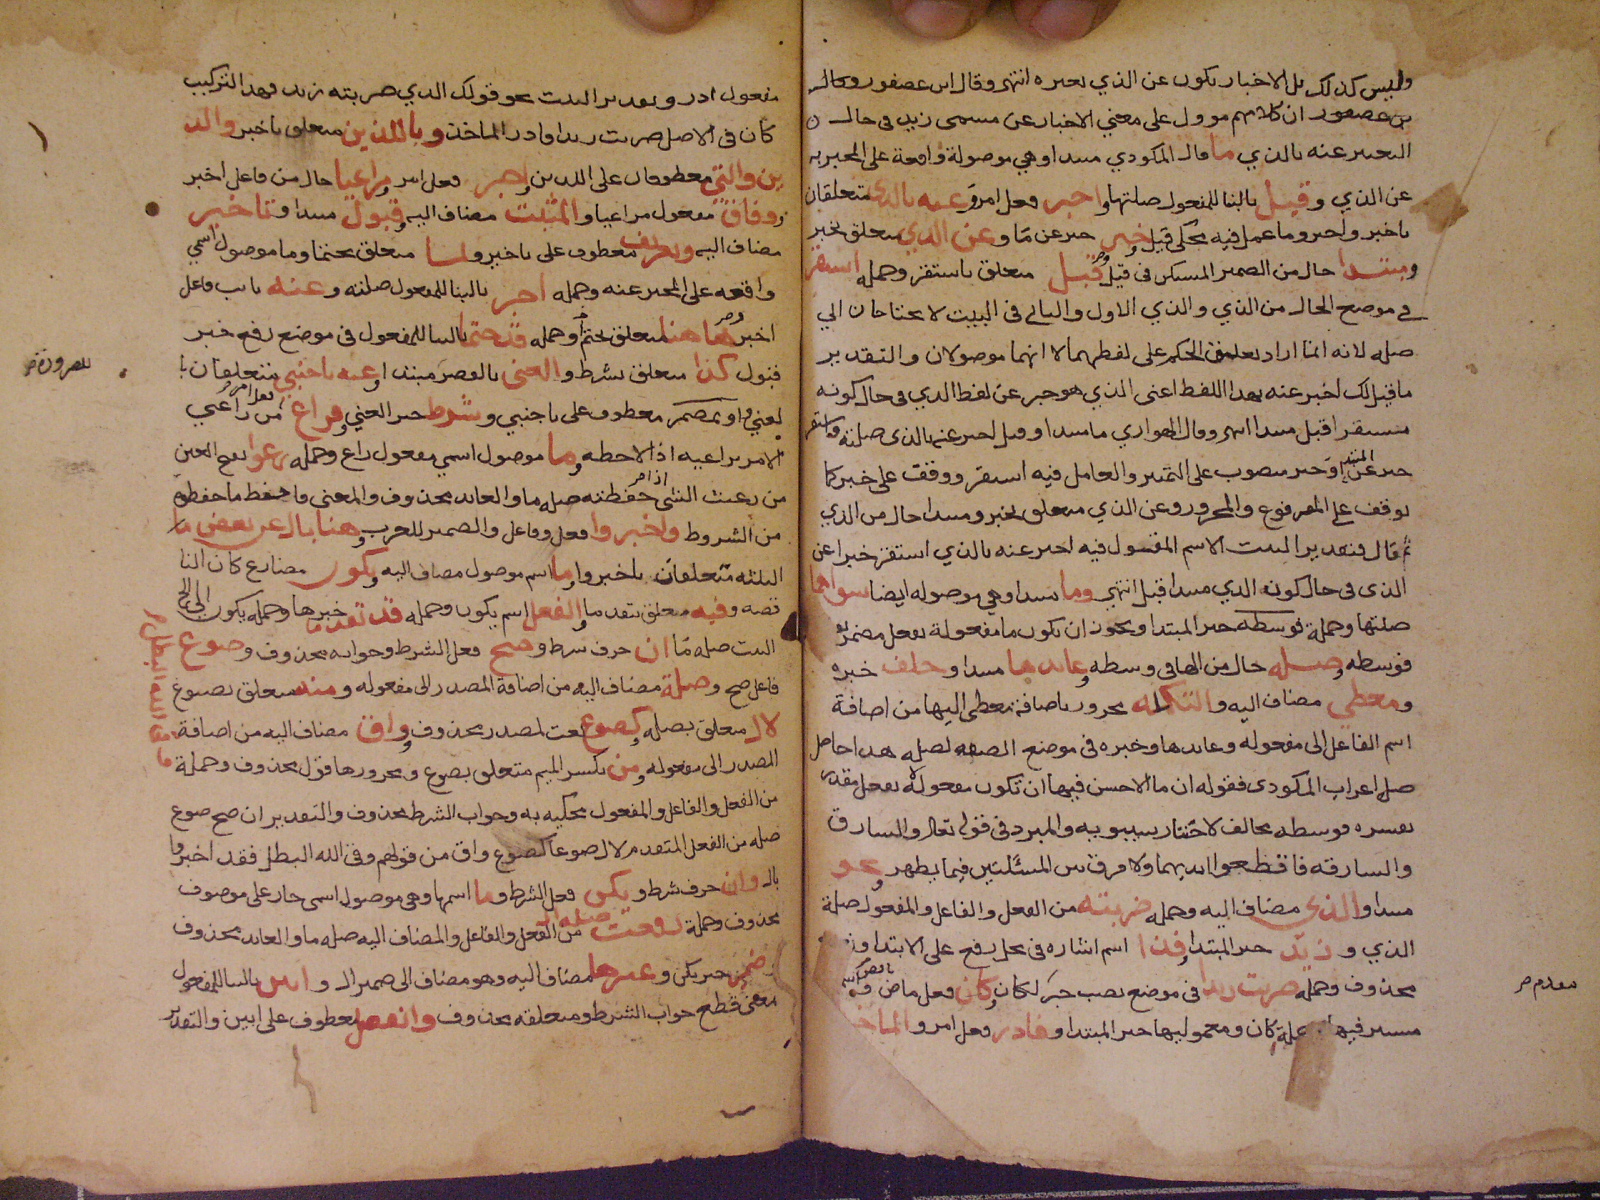 وليس كذلك بل الاخبار يكون عن الذي بعبره انتهى وقال ابن عصفور
بن عصفور ان كلامهم موول على معني الاخبار عن مسمى زيد في حال
التعبير عنه بالذي ما قال المكودي مبتدا وهي موصولة واقعة على المخبر به
عن الذي وقيل بالبنا للمفعول صلتها واخبر فعل امر وعنه بالذي متعلقان
باخبر واخبر وما عمل فيه محكي قيل وخبر خبر عن ما وعن الذي متعلق بخبر
ومبتدا حال من الضمير المستكن في قيل وقبل متعلق باستقر وجملة استقر
في موضع الحال من الذي والذي الاول والثاني في البيت لا يحتاجان الي
صلة لانه انما اراد تعليق الحكم على لفظهما لا انهما موصولان والتقدير
ما قيل لك اخبر عنه بهذا اللفظ اعني الذي هو خبر عن لفظ الذي في حال كونه
مستقرا قبل مبتدا انتهى وقال الهواري ما مبتدا وقيل اخبر عنه بالذي صلته واستقر
خبر عن المبتدا وخبر منصوب على التمييز والعامل فيه استقر ووقف على خبر كما
يوقف على المرفوع والمجرور وعن الذي متعلق بخبر ومبتدا حال من الذي
ثم قال فتقدير البيت الاسم المقول فيه اخبر عنه بالذي استقر خبرا عن
الذي في حال كونه الذي مبتدا قبل انتهى وما مبتدا وهي موصولة ايضا سواهما
صلتها وجملة فوسطه خبر المبتدا ويجوز ان يكون ما مفعولة بفعل مضمر
فوسطه وصله حال من الها في وسطه وعائدها مبتدا وخلف خبره
ومعطي مضاف اليه والتكمله مجرور باضافة معطي اليها من اضافة
اسم الفاعل الى مفعوله وعائدها وخبره في موضع الصفه لصلة هذا حاصل
صل اعراب المكودي فقوله ان ما الاحسن فيها ان تكون مفعولة بفعل مقدر
يفسره فوسطه مخالف لاختيار سيبويه والمبرد في قوله تعالى والسارق
والسارقه فاقطعوا ايديهما ولا فرق بين المسئلتين فيما يظهر ونحو
مبتدا والذي مضاف اليه وجملة ضربته من الفعل والفاعل والمفعول صلة
الذي وزيد خبر المبتدا فذا اسم اشاره في محل رفع على الابتدا
محذوف وجملة ضربت زيدا في موضع نصب خبر لكان وكان فعل ماض
مستتر فيها وجملة كان ومعموليها خبر المبتدا وفادر فعل امر والماخذ
مقدم صح
مفعول ادر وتقدير البيت نحو قولك الذي ضربته زيد فهذا التركيب
كان في الاصل ضربت زيدا فادر الماخذ وباللذين متعلق باخبر والذ
ين والتي معطوفان على اللذين واخبر فعل امر ومراعيا حال من فاعل اخبر
ووفاق مفعول مراعيا والمثبت مضاف اليه وقبول مبتدا وتاخير
مضاف اليه وتعريف معطوف على تاخير ولما متعلق بحتما وما موصول اسمي
واقعه على المخبر عنه وجملة اخبر بالبنا للمفعول صلته وعنه نايب فاعل
اخبر وهاهنا متعلق بحتم وجملة قد حتما بالبنا للمفعول في موضع رفع خبر
قبول كذا متعلق بشرط والغنى بالقصر مبتدا وعنه باجنبي متعلقان با
لغني واو بمضمر معطوف على باجنبي وشرط خبر الغني وفراع فعل امر من راعي
الامر يراعيه اذا لاحظه وما موصول اسمي مفعول راع وجملة رعوا بفتح العين
من رعيت الشي اذا حفظته صلة ما والعائد محذوف والمعني فاحفظ ما حفظوه
من الشروط واخبروا فعل وفاعل والضمير للعرب وهنا بال عن بعض ما
الثلثه متعلقان باخبروا وما اسم موصول مضاف اليه ويكون مضارع كان النا
قصه وفيه متعلق بتقدما والفعل اسم يكون وجملة قد تقدما خبرها وجملة يكون الى اخر
البيت صلة ما ان حرف شرط وصح فعل الشرط وجوابه محذوف وصوغ
فاعل صح وصلة مضاف اليه من اضافة المصدر الى مفعوله ومنه متعلق بصوغ
لال متعلق بصلة وكصوغ نعت لمصدر محذوف وواق مضاف اليه من اضافة
المصدر الى مفعوله ومن بكسر الميم متعلق بصوغ ومجرورها قول محذوف وجملة
وقى الله البطل
من الفعل والفاعل والمفعول محكيه به وجواب الشرط محذوف والتقدير ان صح صوغ
صله من الفعل المتقدم لال صوغا كصوغ واق من قولهم وقى الله البطل فقد اخبروا
بال وان حرف شرط ويكن فعل الشرط وما اسمها وهي موصول اسمي جار على موصوف
محذوف وجملة رفعت صلة ال من الفعل والفاعل والمضاف اليه صلة ما والعائد محذوف
وضمير خبر يكن وغيرها مضاف اليه وهو مضاف الى ضمير ال وابين بالبنا للمفعول
بمعنى قطع جواب الشرط ومتعلقه محذوف وانفصل معطوف على ابين والتقدير